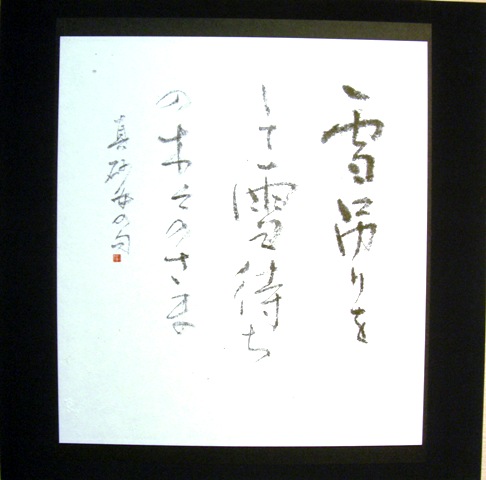 雪吊りを
して雪待ち
の木々のさま
真砂女の句